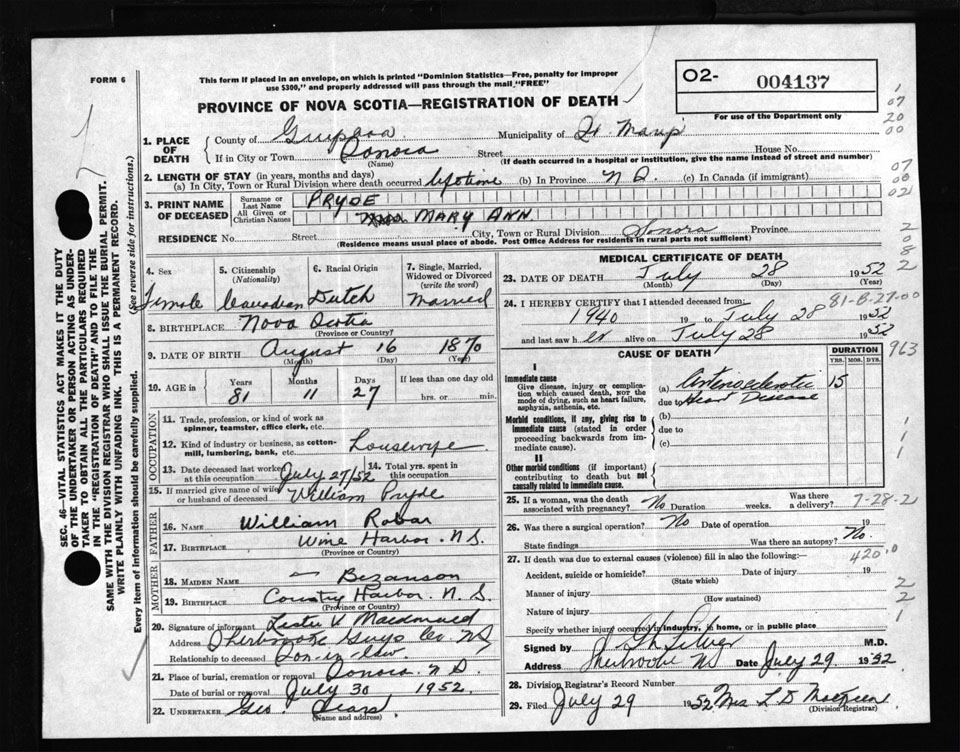 FORM 6
This form if placed in an envelope, on which is printed "Dominion Statistics—Free, penalty for improper
use $300," and properly addressed will pass through the mail "FREE"
O2- 004137
For use of the Department only
PROVINCE OF NOVA SCOTIA—REGISTRATION OF DEATH
SEC. 46—VITAL STATISTICS ACT MAKES IT THE DUTY
OF THE UNDERTAKER OR PERSON ACTING AS UNDER-
TAKER TO OBTAIN ALL THE PARTICULARS REQUIRED
IN THE "REGISTRATION OF DEATH" AND TO FILE THE
SAME WITH THE DIVISION REGISTRAR WHO SHALL ISSUE THE BURIAL PERMIT.
WRITE PLAINLY WITH UNFADING INK. THIS IS A PERMANENT RECORD.
Every item of information should be carefully supplied. (See reverse side for instructions.)
1. PLACE OF DEATH
County of Municipality of St. Marys
If in City or Town Sonora Street House No.
(Name) (If death occurred in a hospital or institution, give the name instead of street and number)
2. LENGTH OF STAY (in years, months and days)
(a) In City, Town or Rural Division where death occurred lifetime (b) In Province N.S. (c) In Canada (if immigrant)
3. PRINT NAME OF DECEASED
Surname or Last Name PRYDE
All Given or Christian Names MARY ANN
RESIDENCE No. Street City, Town or Rural Division Sonora Province
(Residence means usual place of abode. Post Office Address for residents in rural parts not sufficient)
4. Sex Female
5. Citizenship (Nationality) Canadian
6. Racial Origin Dutch
7. Single, Married, Widowed or Divorced (write the word) Married
8. BIRTHPLACE Nova Scotia
(Province or Country)
9. DATE OF BIRTH August 16 1870
(Month) (Day) (Year)
10. AGE in Years Months Days If less than one day old
81 11 27 hrs. or min.
OCCUPATION
11. Trade, profession, or kind of work as
spinner, teamster, office clerk, etc.
12. Kind of industry or business, as cotton-
mill, lumbering, bank, etc. Housewife
13. Date deceased last worked at this occupation July 27/52
14. Total yrs. spent in this occupation
15. If married give name of wife or husband of deceased William Pryde
FATHER
16. NAME William Robar
17. BIRTHPLACE Wine Harbor. N.S.
(Province or Country)
MOTHER
18. MAIDEN NAME — Bezanson
19. BIRTHPLACE Country Harbor. N.S.
(Province or Country)
20. Signature of informant Lester V. Macdonald
Address Sherbrooke Guys Co. NS
Relationship to deceased Son-in-law
21. Place of burial, cremation or removal Sonora. N.S.
Date of burial or removal July 30 1952.
22. UNDERTAKER Geo. Sears
(Name and address)
MEDICAL CERTIFICATE OF DEATH
23. DATE OF DEATH July 28 1952
(Month) (Day) (Year)
24. I HEREBY CERTIFY that I attended deceased from:
1940 19 to July 28 1952
and last saw her alive on July 28 1952
81-8-27-00
963
CAUSE OF DEATH DURATION
YRS. MOS. DYS.
I
Immediate cause
Give disease, injury or complica-
tion which caused death, nor the
mode of dying, such as heart failure,
asphyxia, asthenia, etc.
(a) Arteriosclerotic 15
due to Heart Disease
Morbid conditions, if any, giving rise to
immediate cause (stated in order
proceeding backwards from im-
mediate cause).
(b)
due to
(c)
II
Other morbid conditions (if important)
contributing to death but not
causally related to immediate cause.
25. If a woman, was the death associated with pregnancy? No Duration weeks. Was there a delivery?
7-28-2
26. Was there a surgical operation? No Date of operation 19
State findings Was there an autopsy? No.
27. If death was due to external causes (violence) fill in also the following:—
420.0
Accident, suicide or homicide? Date of injury 19
(State which)
Manner of injury
(How sustained)
Nature of injury
Specify whether injury occurred in industry, in home, or in public place
Signed by M.D.
Address Sherbrooke NS Date July 29 1952
28. Division Registrar's Record Number
29. Filed July 29 1952 Mrs L D
(Division Registrar)